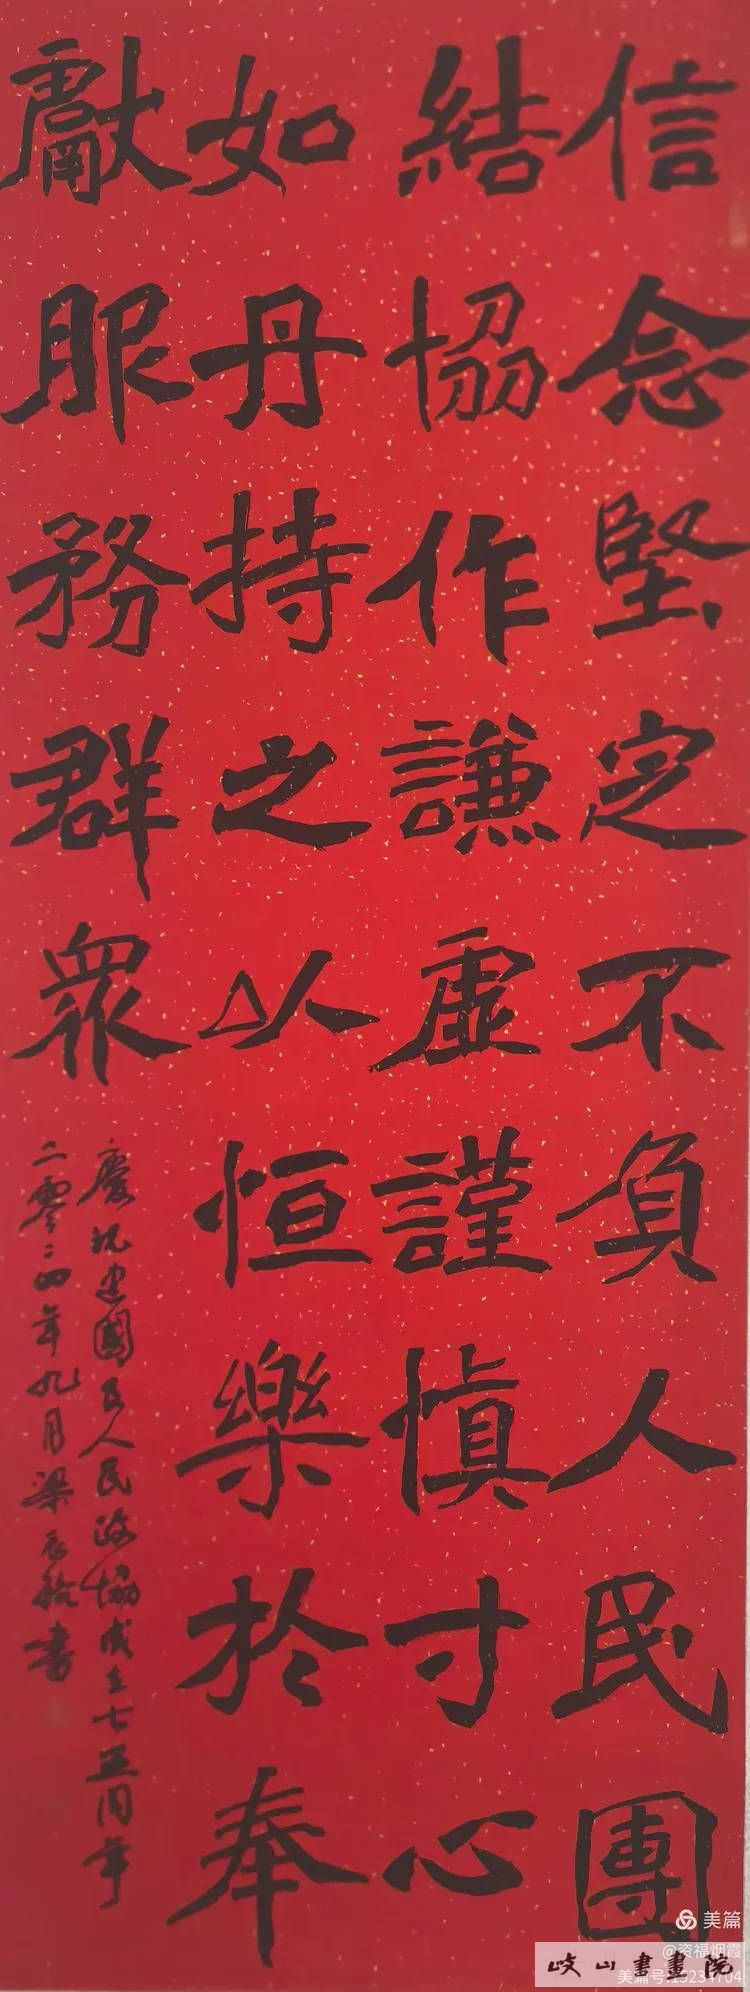 信念堅定不負人民團
結協作謙虛謹慎寸心
如丹持之以恒樂於奉
獻服務群衆
慶祝建國及人民政協成立七五周年
二零二四年九月梁書
美篇
@资福烟霞
美篇号:15234704
岐山書畫院